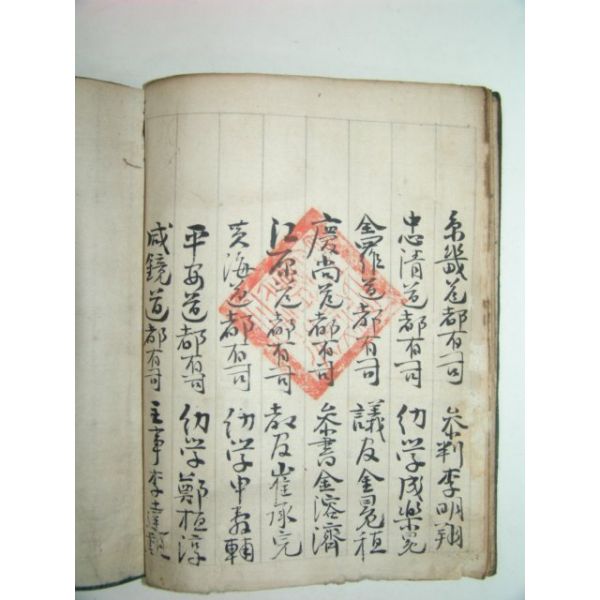 京畿道都有司 參判李明翔
忠清道都有司 幼學成樂冕
全羅道都有司 議官金冕秬
慶尚道都有司 參書金溶濟
江原道都有司 都尹崔承完
黃海道都有司 幼學申 輔
平安道都有司 幼學鄭桓淳
咸鏡道都有司 主事李達